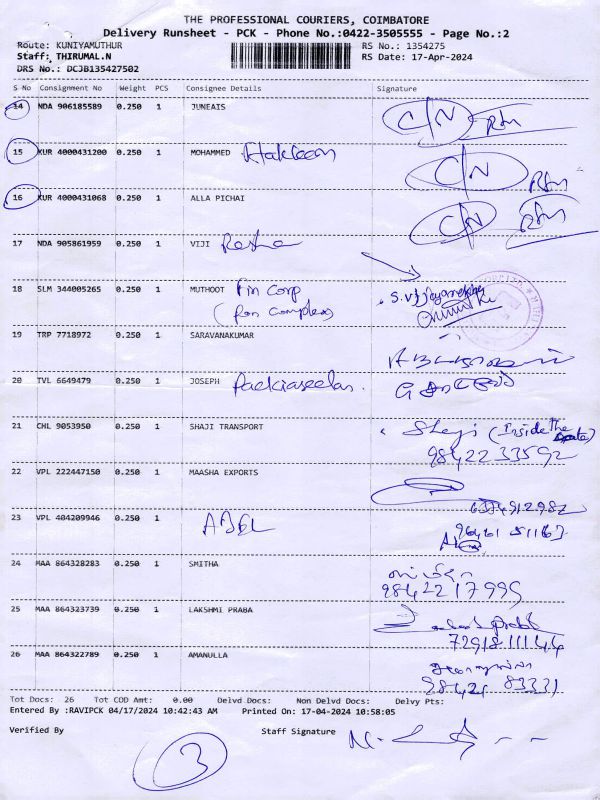 THE PROFESSIONAL COURIERS, COIMBATORE
Delivery Runsheet - PCK - Phone No.:0422-3505555 - Page No.:2
Route: KUNIYAMUTHUR RS No.: 1354275
Staff: THIRUMAL.N RS Date: 17-Apr-2024
DRS No.: DCJB135427502
S No Consignment No Weight PCS Consignee Details Signature
14 NDA 906185589 0.250 1 JUNEAIS C/N
15 KUR 4000431200 0.250 1 MOHAMMED C/N
16 KUR 4000431068 0.250 1 ALLA PICHAI C/N
17 NDA 905861959 0.250 1 VIJI
18 SLM 344005265 0.250 1 MUTHOOT Fin Corp
(Ron Complex)
19 TRP 7718972 0.250 1 SARAVANAKUMAR
20 TVL 6649479 0.250 1 JOSEPH Packiaseelan.
21 CHL 9053950 0.250 1 SHAJI TRANSPORT Shaji (Inside The Gate)
98422 33592
22 VPL 222447150 0.250 1 MAASHA EXPORTS
23 VPL 404209946 0.250 1 ABEL
24 MAA 864328283 0.250 1 SMITHA
98422 17999
25 MAA 864323739 0.250 1 LAKSHMI PRABA
26 MAA 864322789 0.250 1 AMANULLA
98421 83331
Tot Docs: 26 Tot COD Amt: 0.00 Delvd Docs: Non Delvd Docs: Delvy Pts:
Entered By :RAVIPCK 04/17/2024 10:42:43 AM Printed On: 17-04-2024 10:58:05
Verified By Staff Signature
3